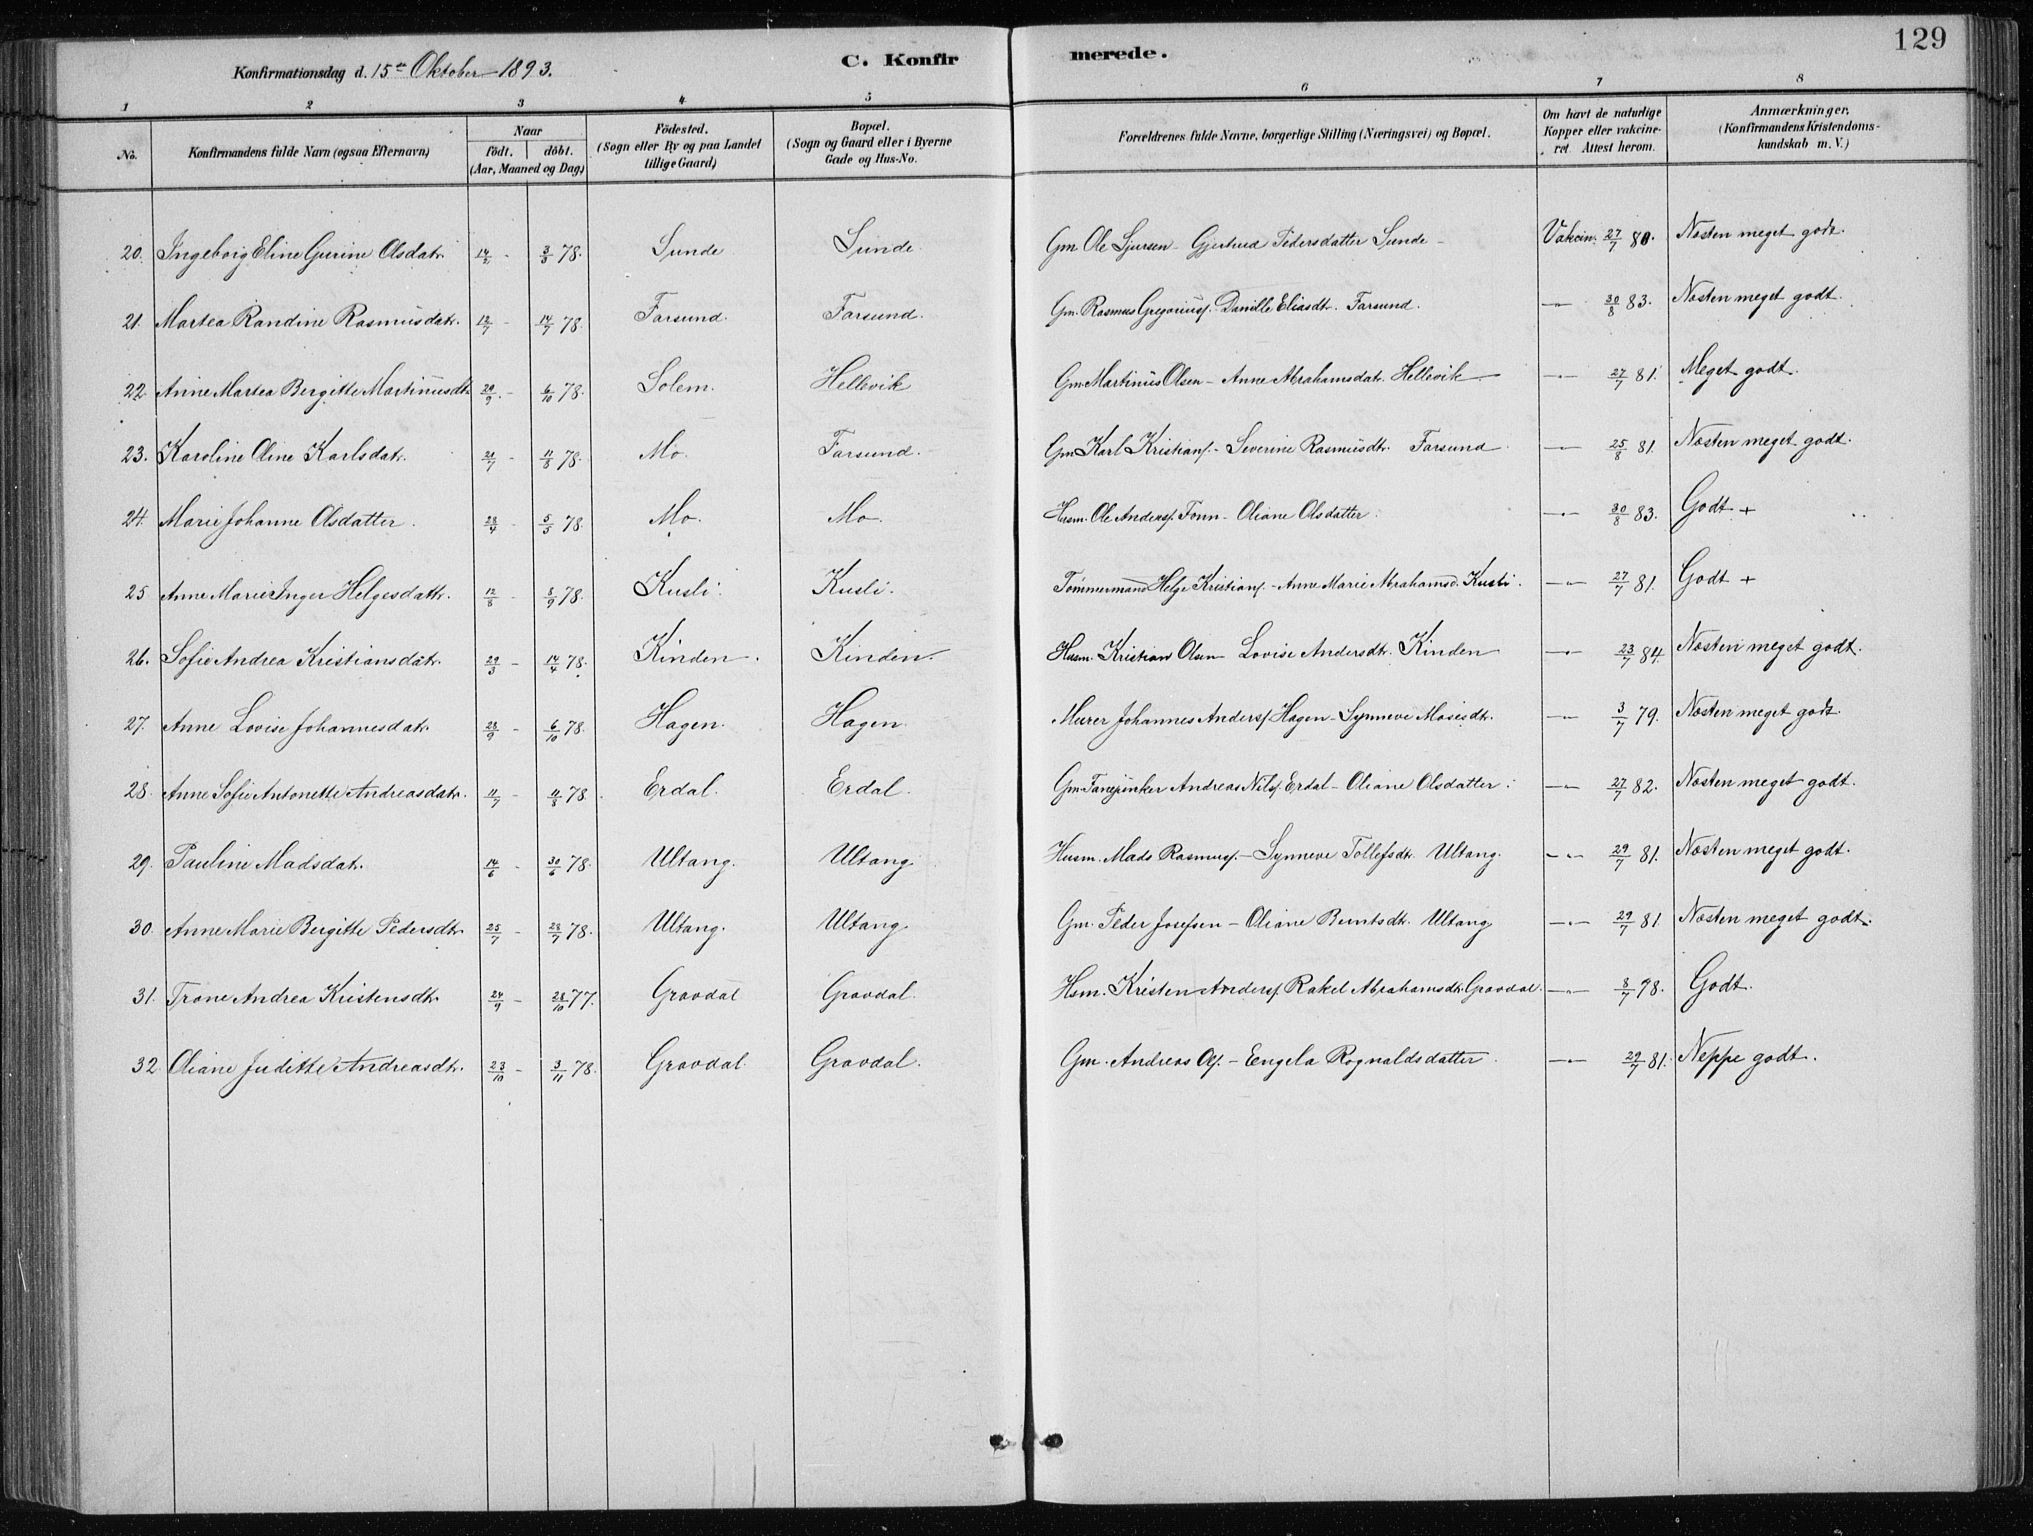 129
Konfirmationsdag d. 15de Oktober 1893.
C. Konfirmerede.
1 2 3 4 5 6 7 8
No. Konfirmandens fulde Navn (ogsaa Efternavn) Naar födt. döbt. (Aar, Maaned og Dag) Födested. (Sogn eller By og paa Landet tillige Gaard) Bopæl. (Sogn og Gaard eller i Byerne Gade og Hus-No. Forældrenes fulde Navne, borgerlige Stilling (Næringsvei) og Bopæl. Om havt de naturlige Kopper eller vakcineret. Attest herom. Anmærkninger. (Konfirmandens Kristendomskundskab m. V.)
20. Ingeborg Eline Gurine Olsdatr. 14/2 - 3/3 78. Sunde Sunde Gm Ole Sjursen - Gjertrud Pedersdatter Sunde - Vakcin. 27/7 80. Næsten meget godt.
21. Martea Randine Rasmusdatr. 12/7 - 14/7 78. Farsund. Farsund. Gm. Rasmus Gregoriusf. Danille Eliasdt. Farsund. -"- 30/8 83. Næsten meget godt.
22 Anne Martea Bergitte Martinusdtr 20/9 - 6/10 78. Solem. Hellevik Gm Martinus Olsen - Anne Abrahamsdatr. Hellevik -"- 27/7 81. Meget godt.
23. Karoline Oline Karlsdatr. 20/7 - 11/8 78. Mo. Farsund. Gm Karl Kristiansf. - Severine Rasmusdtr. Farsund. -"- 25/8 81. Næsten meget godt.
24. Marie Johanne Olsdatter. 23/4 - 5/5 78. Mo. Mo. Husm. Ole Andersf. Fonn - Oliane Olsdatter. -"- 30/8 83. Godt +
25 Anne Marie Inger Helgesdatr. 12/8 - 8/9 78. Kusli. Kusli. Tømmermand Helge Kristiansf. - Anne Marie Abrahamsd. Kusli. -"- 27/7 81. Godt +
26. Sofie Andrea Kristiansdatr. 29/3 - 14/4 78. Kinden. Kinden. Husm. Kristian Olsen Lovise Andersdtr. Kinden -"- 23/7 84. Næsten meget godt.
27. Anne Lovise Johannesdatr. 23/9 - 6/10 78. Hagen. Hagen. Murer Johannes Andersf. Hagen - Synneve Mosesdtr. -"- 3/7 79. Næsten meget godt.
28. Anne Sofie Antonette Andreasdatr. 11/7 - 11/8 78. Erdal. Erdal. Gm Fanejunker Andreas Nilsf. Erdal - Oliane Olsdatter. -"- 27/7 82. Næsten meget godt.
29. Pauline Madsdatr. 14/6 - 30/6 78. Ultang. Ultang Husm. Mads Rasmusf. - Synneve Tollefsdtr. Ultang. -"- 29/7 81. Næsten meget godt.
30. Anne Marie Bergitte Pedersdtr. 25/7 - 28/7 78. Ultang. Ultang Gm. Peder Josefsen - Oliane Berntsdtr. Ultang -"- 29/7 81. Næsten meget godt.
31. Trone Andrea Kristensdtr. 24/9 - 28/10 77. Gravdal Gravdal. Hsm. Kristen Andersf. Rakel Abrahamsdtr. Gravdal. -"- 8/7 98. Godt.
32 Oliane Juditte Andreasdtr. 23/10 - 3/11 78. Gravdal Gravdal. Gm. Andreas Olsf. - Engela Rognaldsdatter. -"- 29/7 81. Neppe godt.